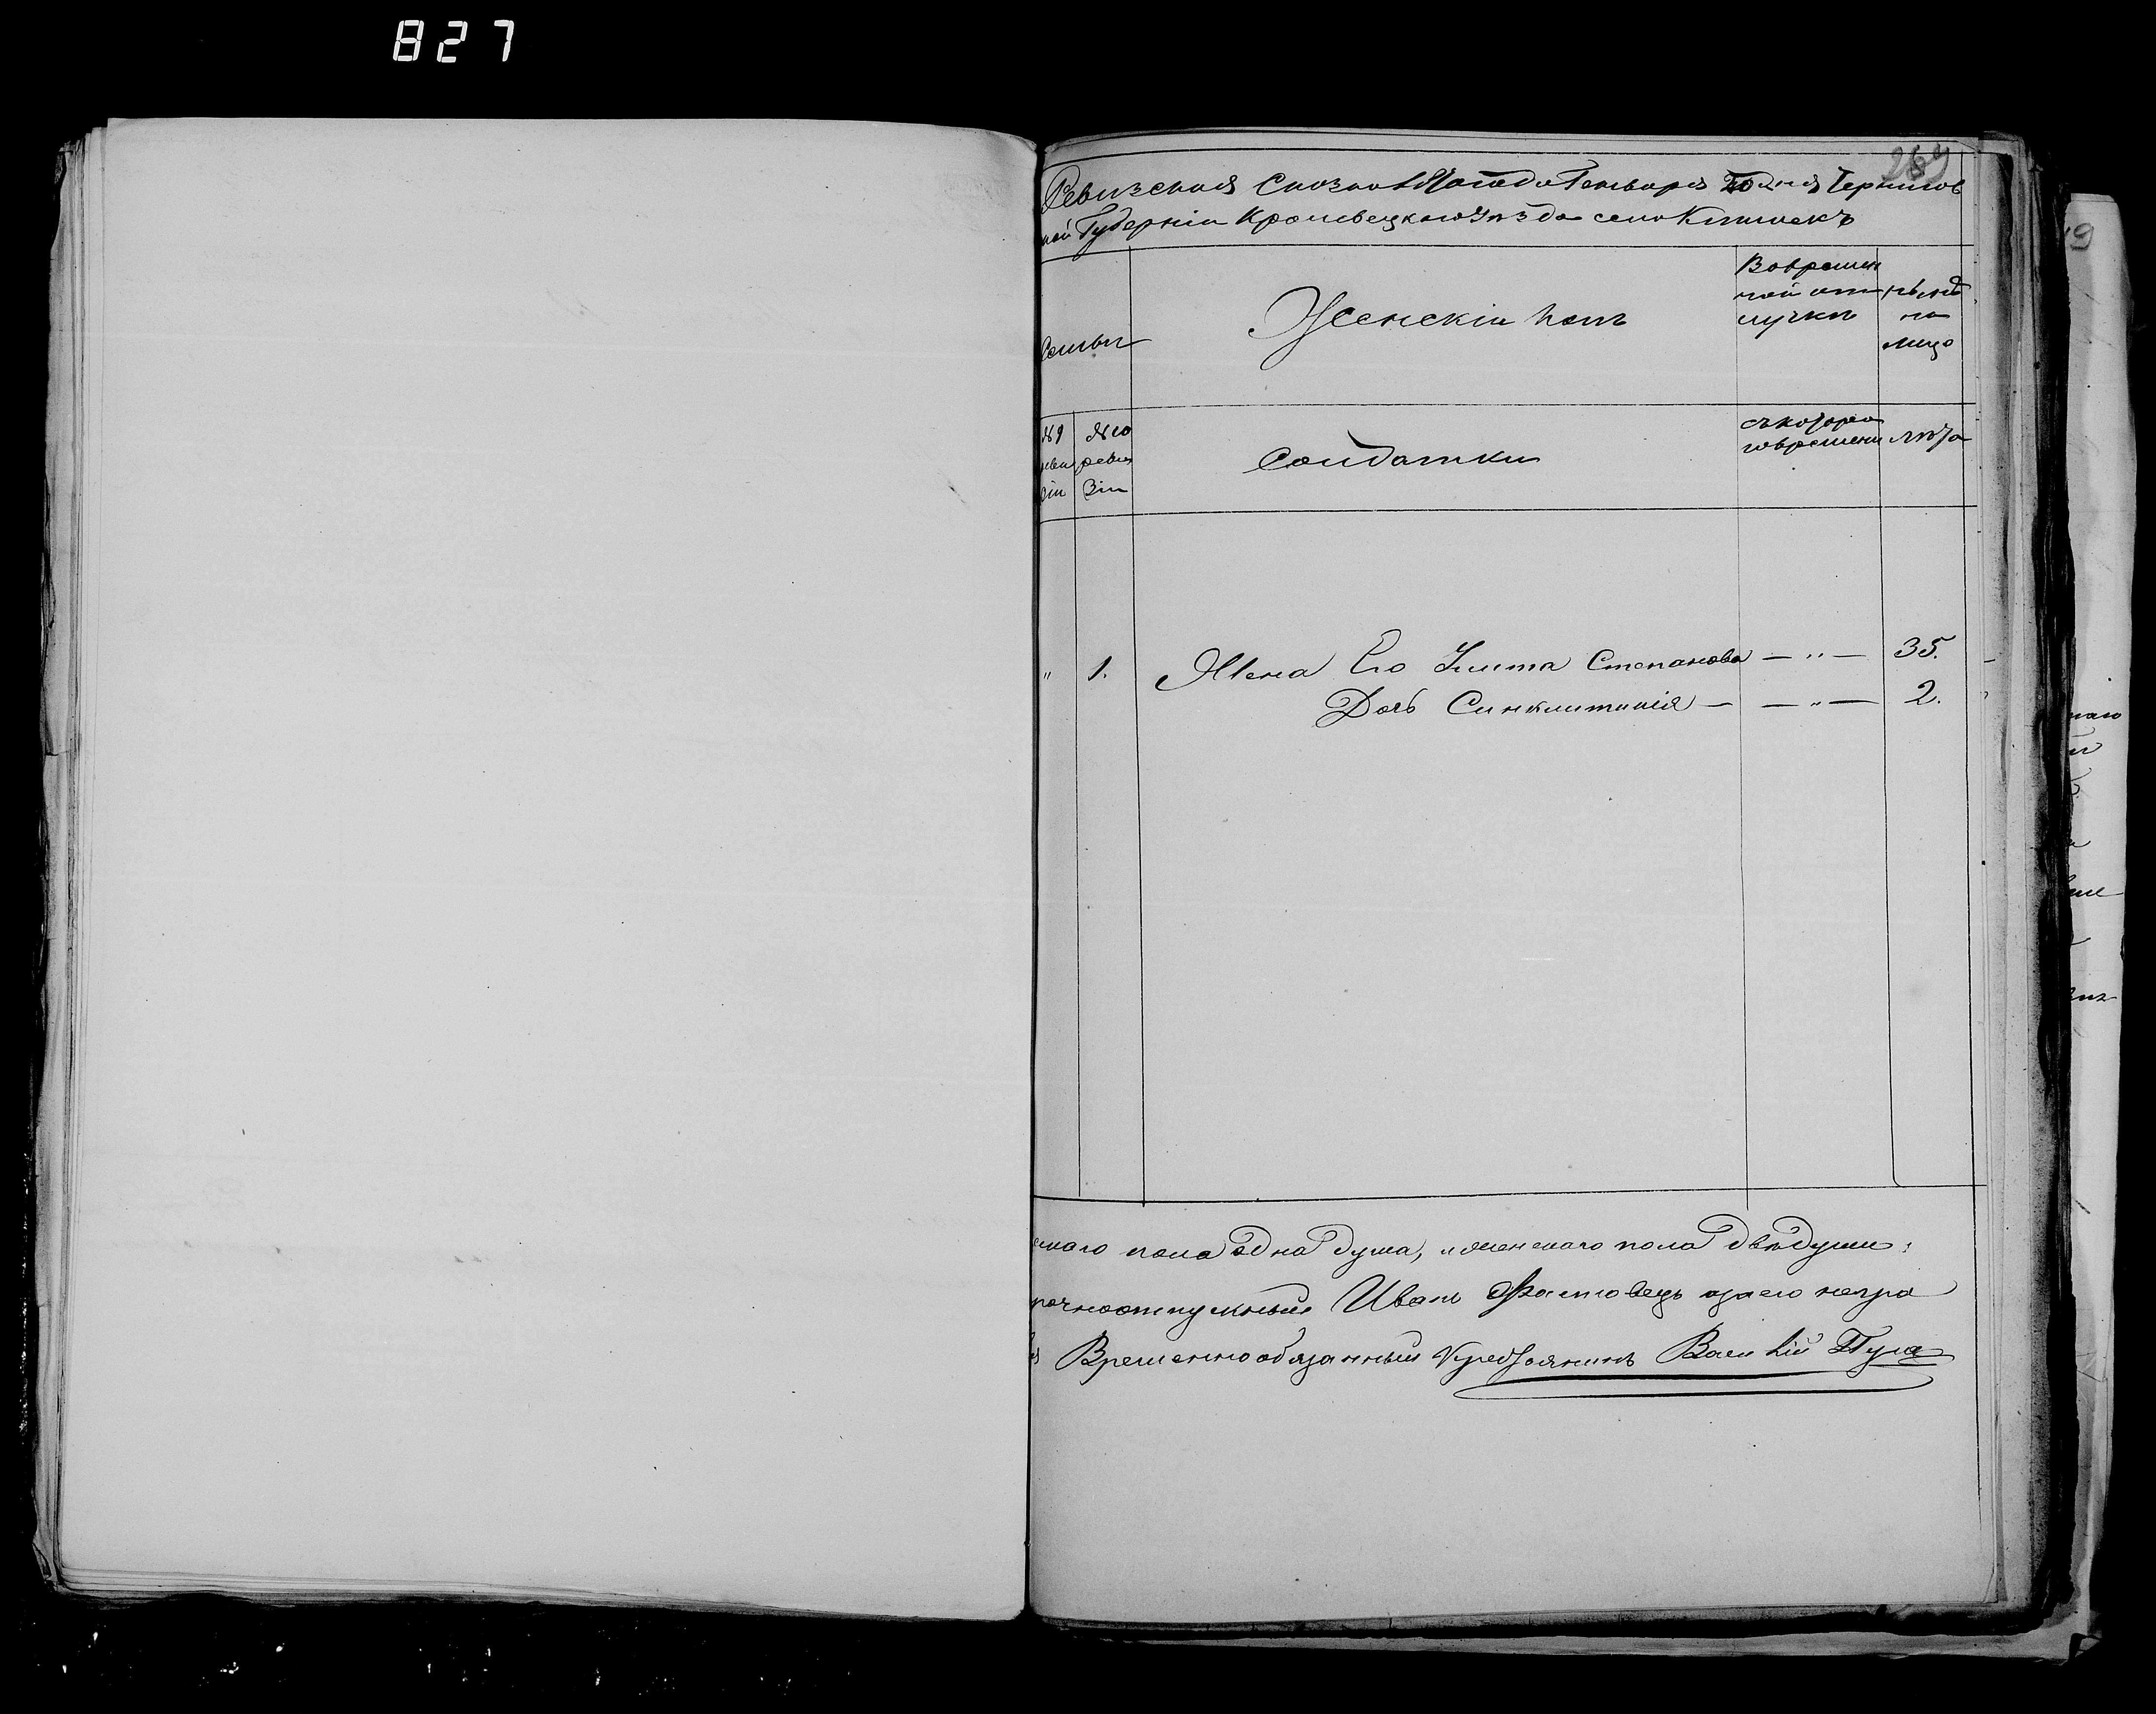 827
269
Ревизская Сказка года Генваря дня Чернигов
ной Губерніи Кролевецкаго Уѣзда село
Семьи
Женскій полъ
Вовремен
ной от
лучкѣ
нынѣ
на
лицо
№ 9
реви
зіи
№ 10
реви
зіи
Солдатки
съкотора
говремени
лѣта
" 1. Жена Его Улита Степанова — " — 35.
Дочь Синклитикія — — " — 2.
скаго пола одна душа, женскаго пола двѣ души
рочноотпускный Иванъ Фастовець азаего негра
Временнообязанный Василій Пуга
19